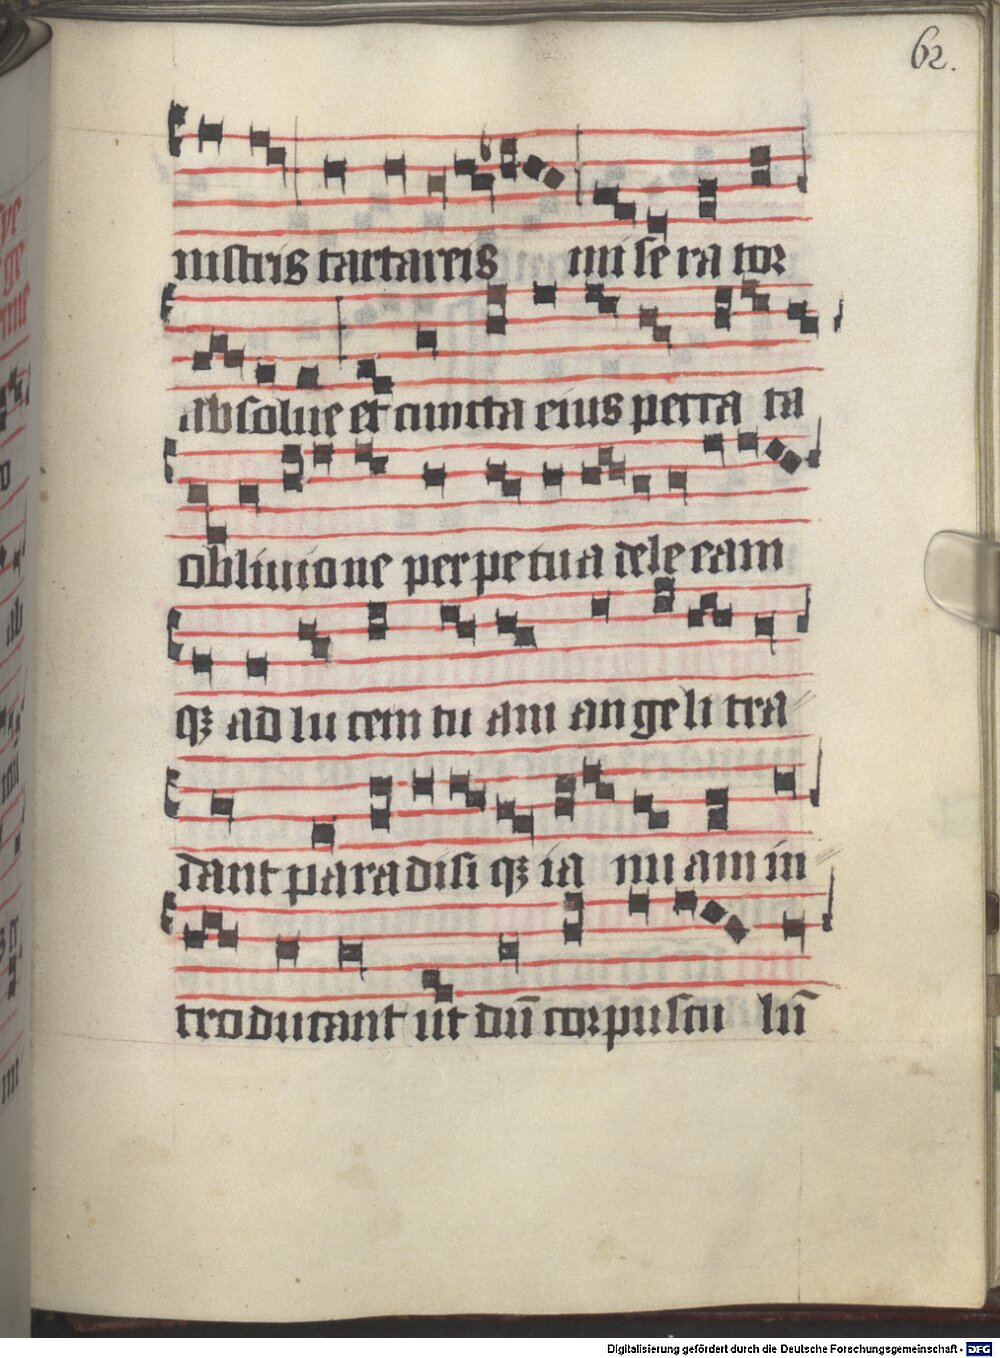 62.
nistris tartareis mi se ra tor
absolue et cuncta eius pecca ta
obliuione perpetua dele eam
qꝫ ad lu cem tu am an ge li tra
dant para disi qꝫ ia nu am in
troducant ut dū̄ corpuscu lū
Digitalisierung gefördert durch die Deutsche Forschungsgemeinschaft - DFG